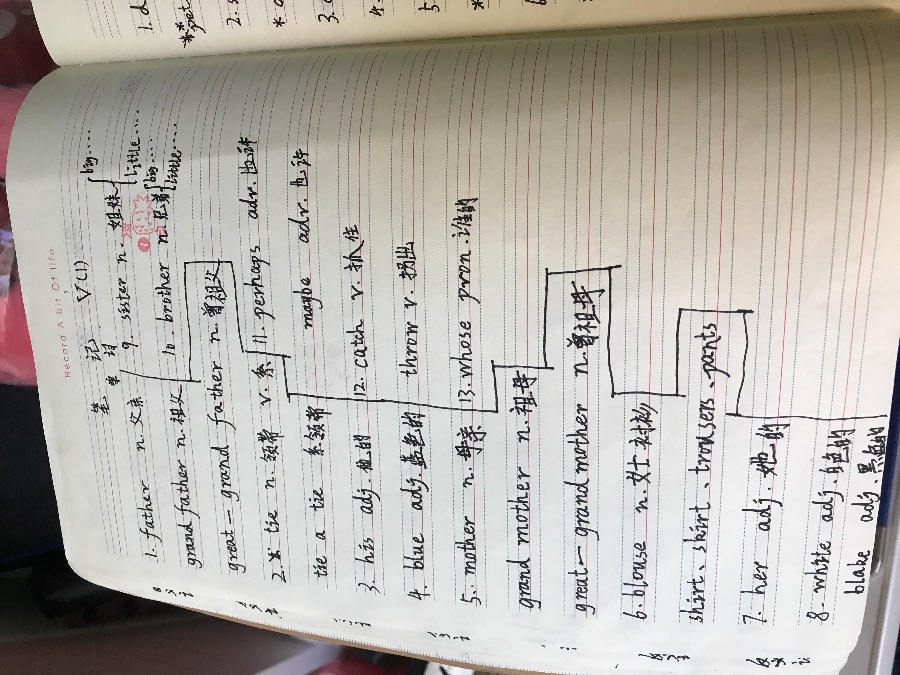 Record A Bit Of life
笔记 V(1)
单词
1. father n. 父亲
grand father n. 祖父
great-grand father n. 曾祖父
2. tie n. 领带 v. 系
tie a tie 系领带
3. his adj. 他的
4. blue adj. 蓝色的
5. mother n. 母亲
grand mother n. 祖母
great-grandmother n. 曾祖母
6. blouse n. 女士衬衫
shirt、skirt、trousers、pants
7. her adj. 她的
8. white adj. 白色的
blake adj. 黑色的
9. sister n. 姐妹 { big....
little....
10. brother n. 兄弟 { big....
little....
11. perhaps adv. 也许
maybe adv. 也许
12. catch v. 抓住
throw v. 扔出
13. whose pron. 谁的
1.
**pet
2.
3.
4.
5.